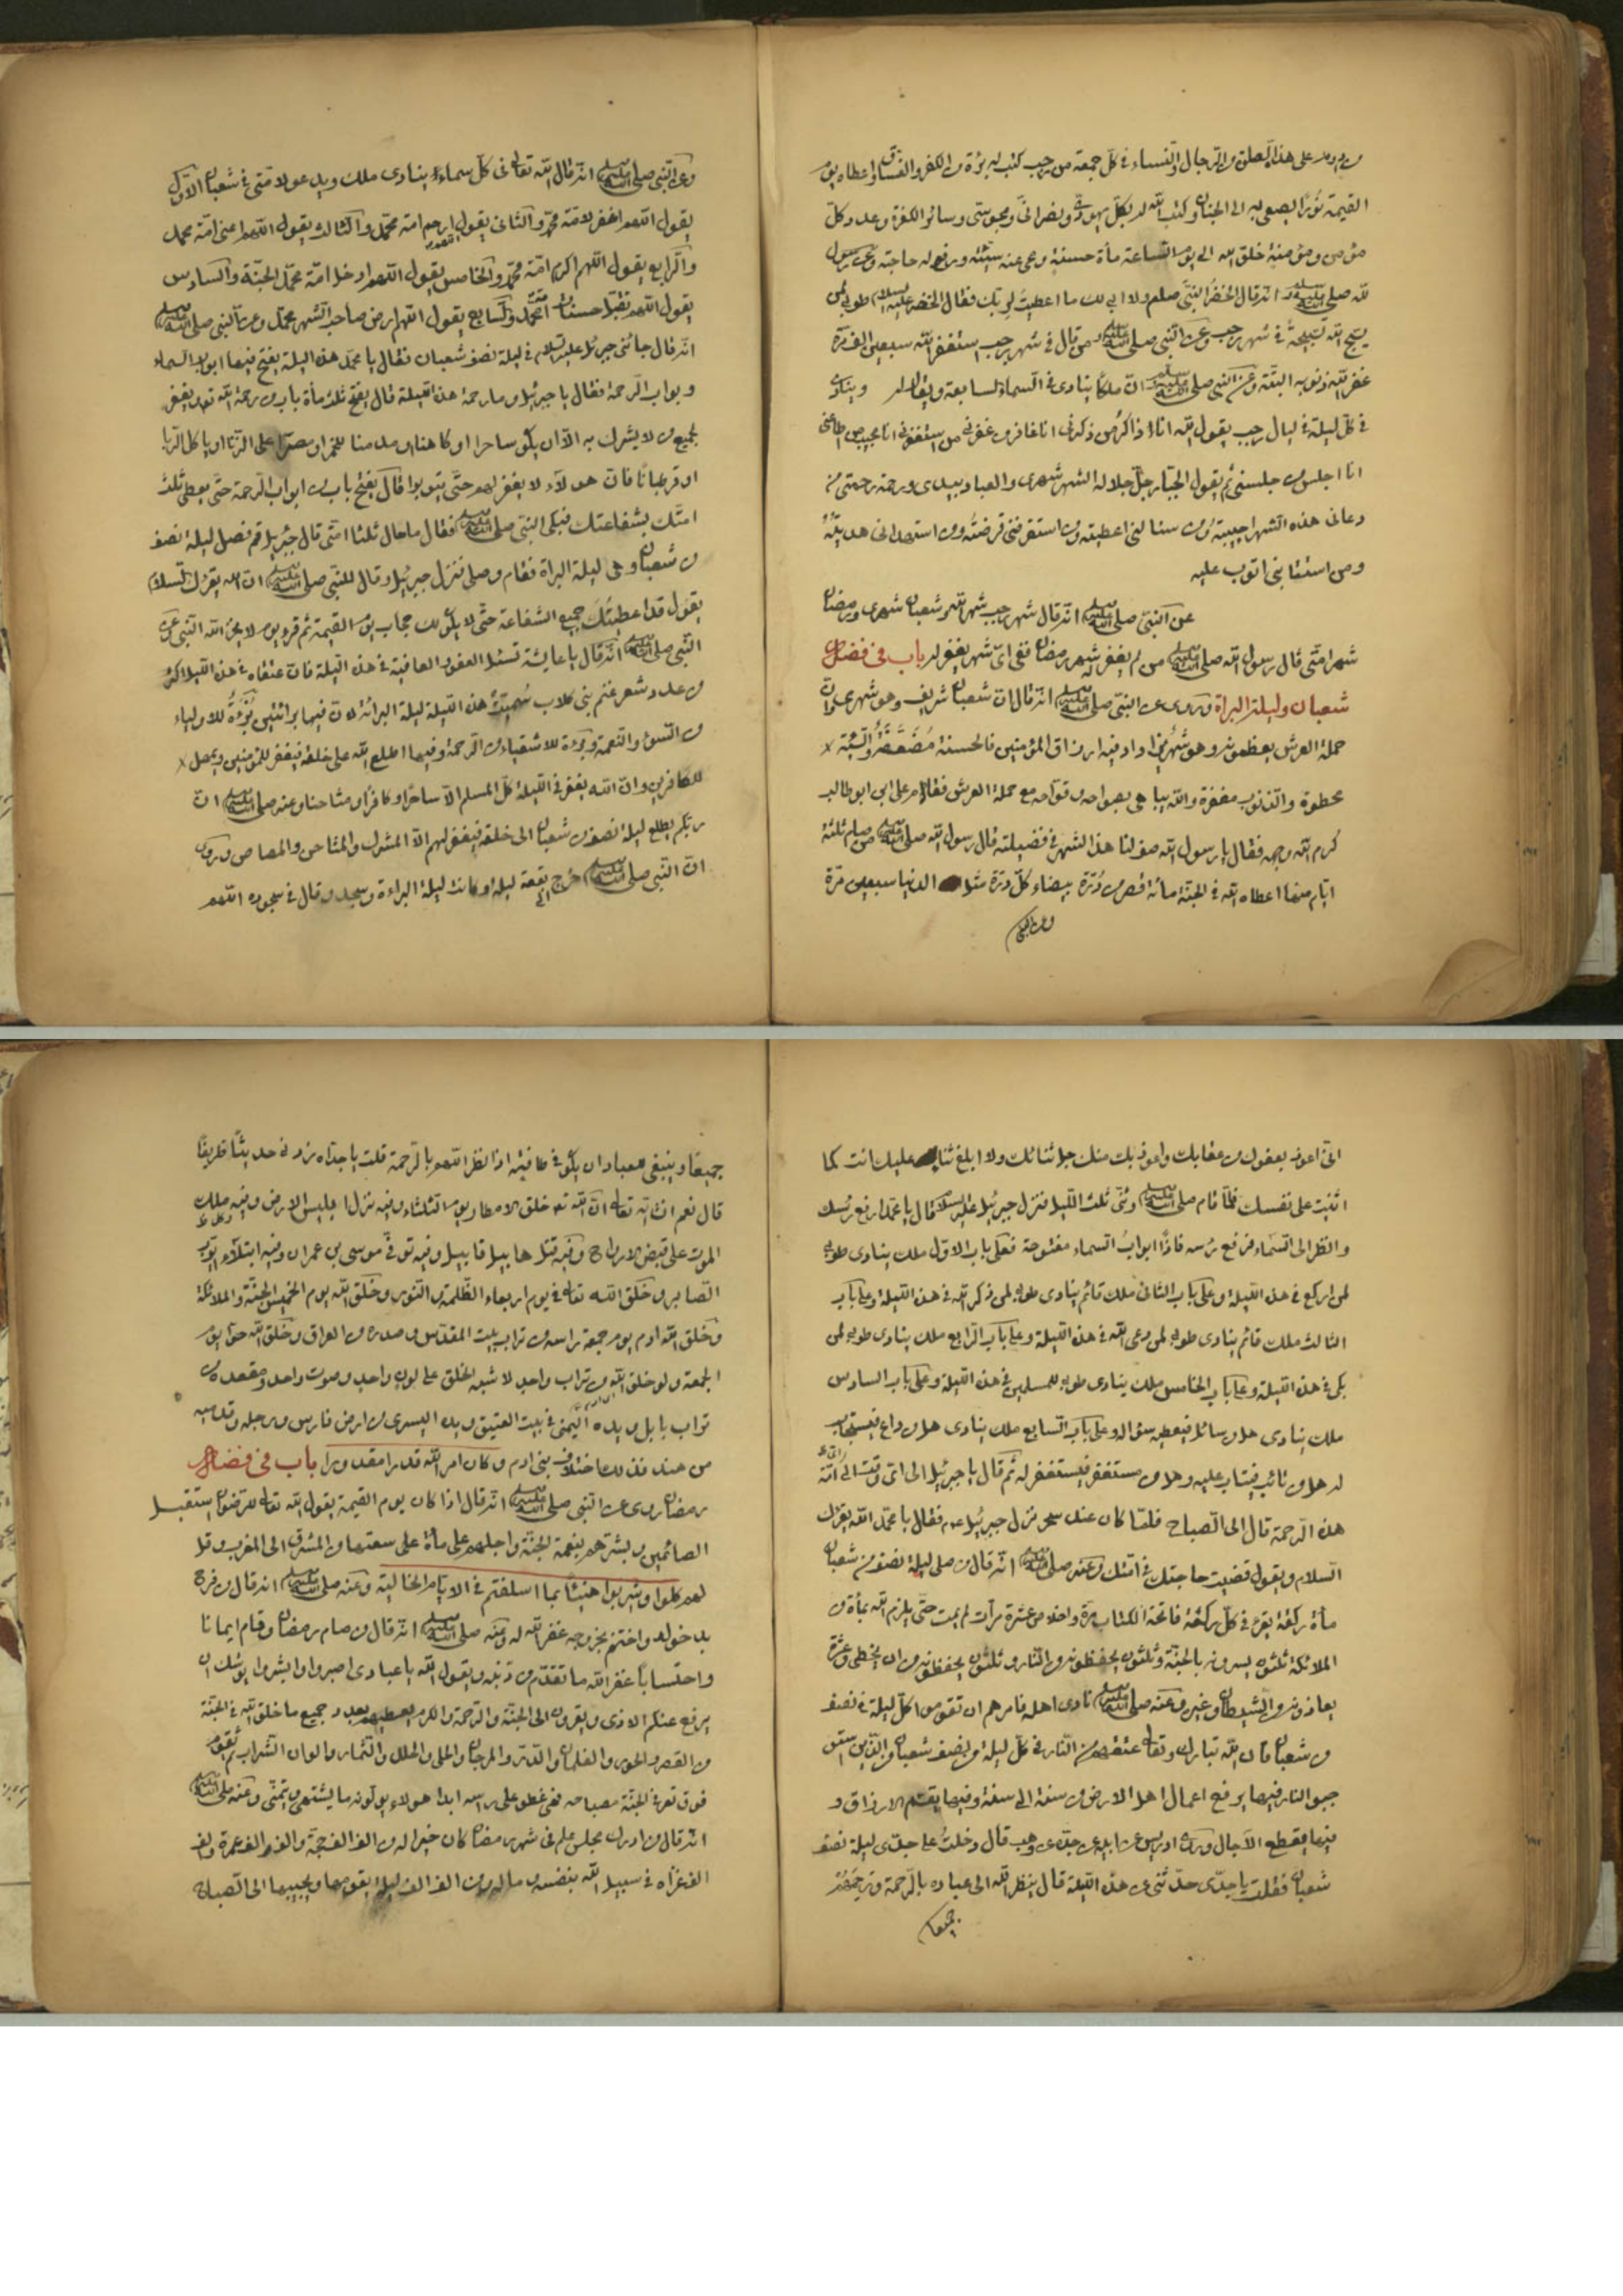 من داوم على هذا الصلوة من الرجال والنساء في كل جمعة من رجب كتب له برؤة من الكفر والفسق واعطاه يوم
القيمة نورا يسعى به الى الجنان وكتب الله له بكل يهودي ونصراني ومجوسي وسائر الكفرة وعدد كل
مؤمن ومؤمنة خلق الله الى يوم الساعة مأة حسنة ومحى عنه سيئة ورفع له حاجته وعن رسول
الله صلى الله عليه وسلم انه قال الخضر النبي صلعم ولا ابى لك ما اعطيت لربك فقال الخضر عليه السلام طوبى لمن
يسبح الله تسبيحة في شهر رجب وعن النبي صلى الله عليه وسلم من قال في شهر رجب استغفر الله سبعين الف مرة
غفر الله ذنوبه البتة وعن النبي صلى الله عليه وسلم ان ملكا ينادى في السماء السابعة ويقال له وينادى
في كل ليلة في ليال رجب يقول الله انا ذاكر من ذكرني انا غافر من غفرني من استغفرني انا مجيب من اطاعني
انا اجلس من جلسني ثم يقول الجبار جل جلاله الشهر شهرى والعباد بيدى ورحمة رحمتى من
دعانى هذه الشهر اجيبته ومن سئالني اعطيته ومن استقرضني قرضته ومن استهدانى هديته
ومن استتابنى اتوب عليه
عن النبي صلى الله عليه وسلم انه قال شهر رجب شهر الله وشعبان شهرى ورمضان
شهر امتى قال رسول الله صلى الله عليه وسلم من لم يغفر له شهر رمضان ففي اى شهر يغفر له باب في فضل
شعبان وليلة البراة وروى عن النبي صلى الله عليه وسلم انه قال ان شعبان شريف وهو شهرى وان
حملة العرش يعظمونه وهو شهر يزداد فيه ارزاق المؤمنين فالحسنة مضعفة والسيئة
محطوة والذنوب مغفرة والله يباهى بصوامه وقوامه مع حملة العرش فقام على ابن ابو طالب
كرم الله وجهه فقال يا رسول الله صف لنا هذا الشهر في فضيلته قال رسول الله صلى الله عليه وسلم من صام ثلثة
ايام منها اعطاه الله في الجنة مائة قصر من درة بيضاء كل درة مثل الدنيا سبعين مرة
وعن النبي
وعن النبي صلى الله عليه وسلم انه قال الله تعالى في كل سماء ينادى ملك ويدعو لامتى في شعبان الاول
يقول اللهم اغفر لامة محمد والثانى يقول اللهم ارحم امة محمد والثالث يقول اللهم اعنى امة محمد
والرابع يقول اللهم اكرم امة محمد والخامس يقول اللهم ادخل امة محمد الجنة والسادس
يقول اللهم تقبل حسنات امة محمد والسابع يقول اللهم ارض صاحب الشهر محمد وعن النبي صلى الله عليه وسلم
انه قال جائنى جبرئيل عليه السلام في ليلة نصف شعبان فقال يا محمد هذه اليلة يفتح فيها ابواب السماء
وبواب الرحمة فقال يا جبرئيل وما رحمة هذه الليلة قال يفتح ثلثمأة باب من رحمة الله تعه يغفر
لجميع من لا يشرك به الا ان يكون ساحرا او كاهنا او مدمنا للخمر او مصرا على الزنا او ياكل الربا
او قرطبانا فان هولاء لا يغفر لهم حتى يتوبوا قال يفتح باب من ابواب الرحمة حتى يعطى ثلث
امتك بشفاعتك فبكى النبي صلى الله عليه وسلم فقال ما حال ثلثا امتى قال جبريل قم فصل ليلة نصف
من شعبان وهى ليلة البراة فقام وصلى فنزل جبرئيل وقال للنبي صلى الله عليه وسلم ان الله يقرئك السلام
يقول قد اعطيتك جميع الشفاعة حتى لا يكون لك حجاب يوم القيمة ثم قرء يوم لا يخزى الله النبي عن
النبي صلى الله عليه وسلم انه قال يا عايشة تسئل العفو والعافية في هذه الليلة فان عتقاه في هذه الليلة اكثر
من عدد شعر غنم بنى كلاب سميت هذه الليلة ليلة البرائة لان فيها برائتين برؤة للاولياء
من السوء والنقمة وبرؤة للاشقياء من الرحمة وفيها اطلع الله على خلقه فيغفر للمؤمنين ويمهل
للكافرين وان الله يغفر في الليلة كل المسلم الا ساحرا وكافرا ومشاحنا وعنه صلى الله عليه وسلم ان
ربكم يطلع ليلة نصف من شعبان الى خلقه فيغفر لهم الا المشرك والمشاحن والمصاص وروى
ان النبي صلى الله عليه وسلم خرج الى بقعة ليلة وكانت ليلة البراءة وسجد وقال في سجوده اللهم
انى اعوذ بعفوك من عقابك واعوذ بك منك جل ثنائك ولا ابلغ ثناء عليك انت كما
اثنيت على نفسك فلما قام صلى الله عليه وسلم وثنى ثلث الليل فنزل جبرئيل عليه السلام قال يا محمد ارفع رئسك
وانظر الى السماء فرفع رئسه فاذا ابواب السماء مفتوحة فعلى باب الاول ملك ينادى طوبى
لمن اركع في هذه الليلة وعلى باب الثانى ملك قائم ينادى طوبى لمن ذكر الله في هذه الليلة وعلى باب
الثالث ملك قائم ينادى طوبى لمن دعى الله في هذه الليلة وعلى باب الرابع ملك ينادى طوبى لمن
بكى في هذه الليلة وعلى باب الخامس ملك ينادى طوبى للمسلمين في هذه الليلة وعلى باب السادس
ملك ينادى هل من سائل فيعطى سؤاله وعلى باب السابع ملك ينادى هل من داع فيستجاب
له هل من تائب فيتاب عليه وهل من مستغفر فيستغفر له ثم قال يا جبرئيل الى اى وقت الى امة
هذه الرحمة قال الى الصباح فلما كان عند سحر نزل جبرئيل عم فقال يا محمد الله يقرئك
السلام ويقول قضيت حاجتك في امتك وعنه صلى الله عليه وسلم انه قال من صلى ليلة نصف من شعبان
مأة ركعة يقرء في كل ركعة فاتحة الكتاب مرة واخلاص عشرة مرات لم يمت حتى يلزم الله بمأة من
الملائكة ثلثون يبسرونه بالجنة وثلثون يحفظونه من النار وثلثون يحفظونه من ان يخطى وعشرة
يعاذونه من الشيطان وغيره وعنه صلى الله عليه وسلم نادى اهله فامرهم ان تقوموا كل ليلة في نصف
من شعبان فان الله تبارك وتعالى عتقهم من النار في كل ليلة ونصف شعبان والذين استق
جبو النار فيها يرفع اعمال اهل الارض من سنة الى سنة وفيها يقسم الارزاق و
فيها يقطع الآجال وروى ادريس عن ابيه عن جده عن وهب قال دخلت على جدى ليلة نصف
شعبان فقلت يا جدى حدثنى عن هذه الليلة قال ينظر الله الى عباده بالرحمة وترحمهم
جميعا
جميعا وينبغي للعباد ان يكون في عافية اذا نظر اللهم بالرحمة قلت يا جداه زدنى حديثا ظريفا
قال نعم انشاء الله تعالى ان الله تعه خلق الامطار يوم الثلثاء وفيه نزل ابليس الارض وفيه ملك
الموت على قبض الارواح وفيه قتل هابيل قابيل وفيه توفى موسى بن عمران وفيه ابتلاء ايوب
الصابر وخلق الله تعالى في يوم اربعاء الظلمة والنور وخلق الله يوم الخميس الجنة والملائكة
وخلق الله ادم يوم جمعة راسه من تراب بيت المقدس وصدره من العراق وخلق الله حوا يوم
الجمعة ولو خلق الله من تراب واحد لاشبه الخلق على لون واحد وصوت واحد ومقعده من
تراب بابل ويده اليمنى في بيت العتيق ويده اليسرى من ارض فارس ورجله وقدميه
من هند فذلك اختلاف بنى ادم وكان امر الله قدرا مقدورا باب في فضل
رمضان روى عن النبي صلى الله عليه وسلم انه قال اذا كان يوم القيمة يقول الله تعالى للرضوان استقبل
الصائمين وبشرهم بنعمة الجنة واجلهم على مأة على سعتها من المشرق الى المغرب وقل
لهم كلوا واشربوا هنيئا بما اسلفتم في الايام الخالية وعنه صلى الله عليه وسلم انه قال من فرح
بدخوله واغتنم بخروجه غفر الله له وعنه صلى الله عليه وسلم انه قال من صام رمضان وقام ايمانا
واحتسابا غفر الله ما تقدم من ذنبه ويقول الله يا عبادى اصبروا وابشروا يوشك ان
يرفع عنكم الاذى وتقرون الى الجنة والرحمة والكرم يعطيهم بعدد جميع ما خلق الله في الجنة
من القصر والحور والغلمان والدر والمرجان والحلى والحلل والثمار والوان الشراب ثم تقوم
فوق تعرف الجنة مصباحه ففى غطو على راسه ابدا هولاء يولونه ما يشتهى ويتمنى وعنه صلى الله عليه وسلم
انه قال من ادرك مجلس علم في شهر رمضان كان خير اله من الف الف حجة والف الف عمرة والف
الف غزاه في سبيل الله بنفسه وماله ومن الف الف ليلة يقومها ويحييها الى الصباح